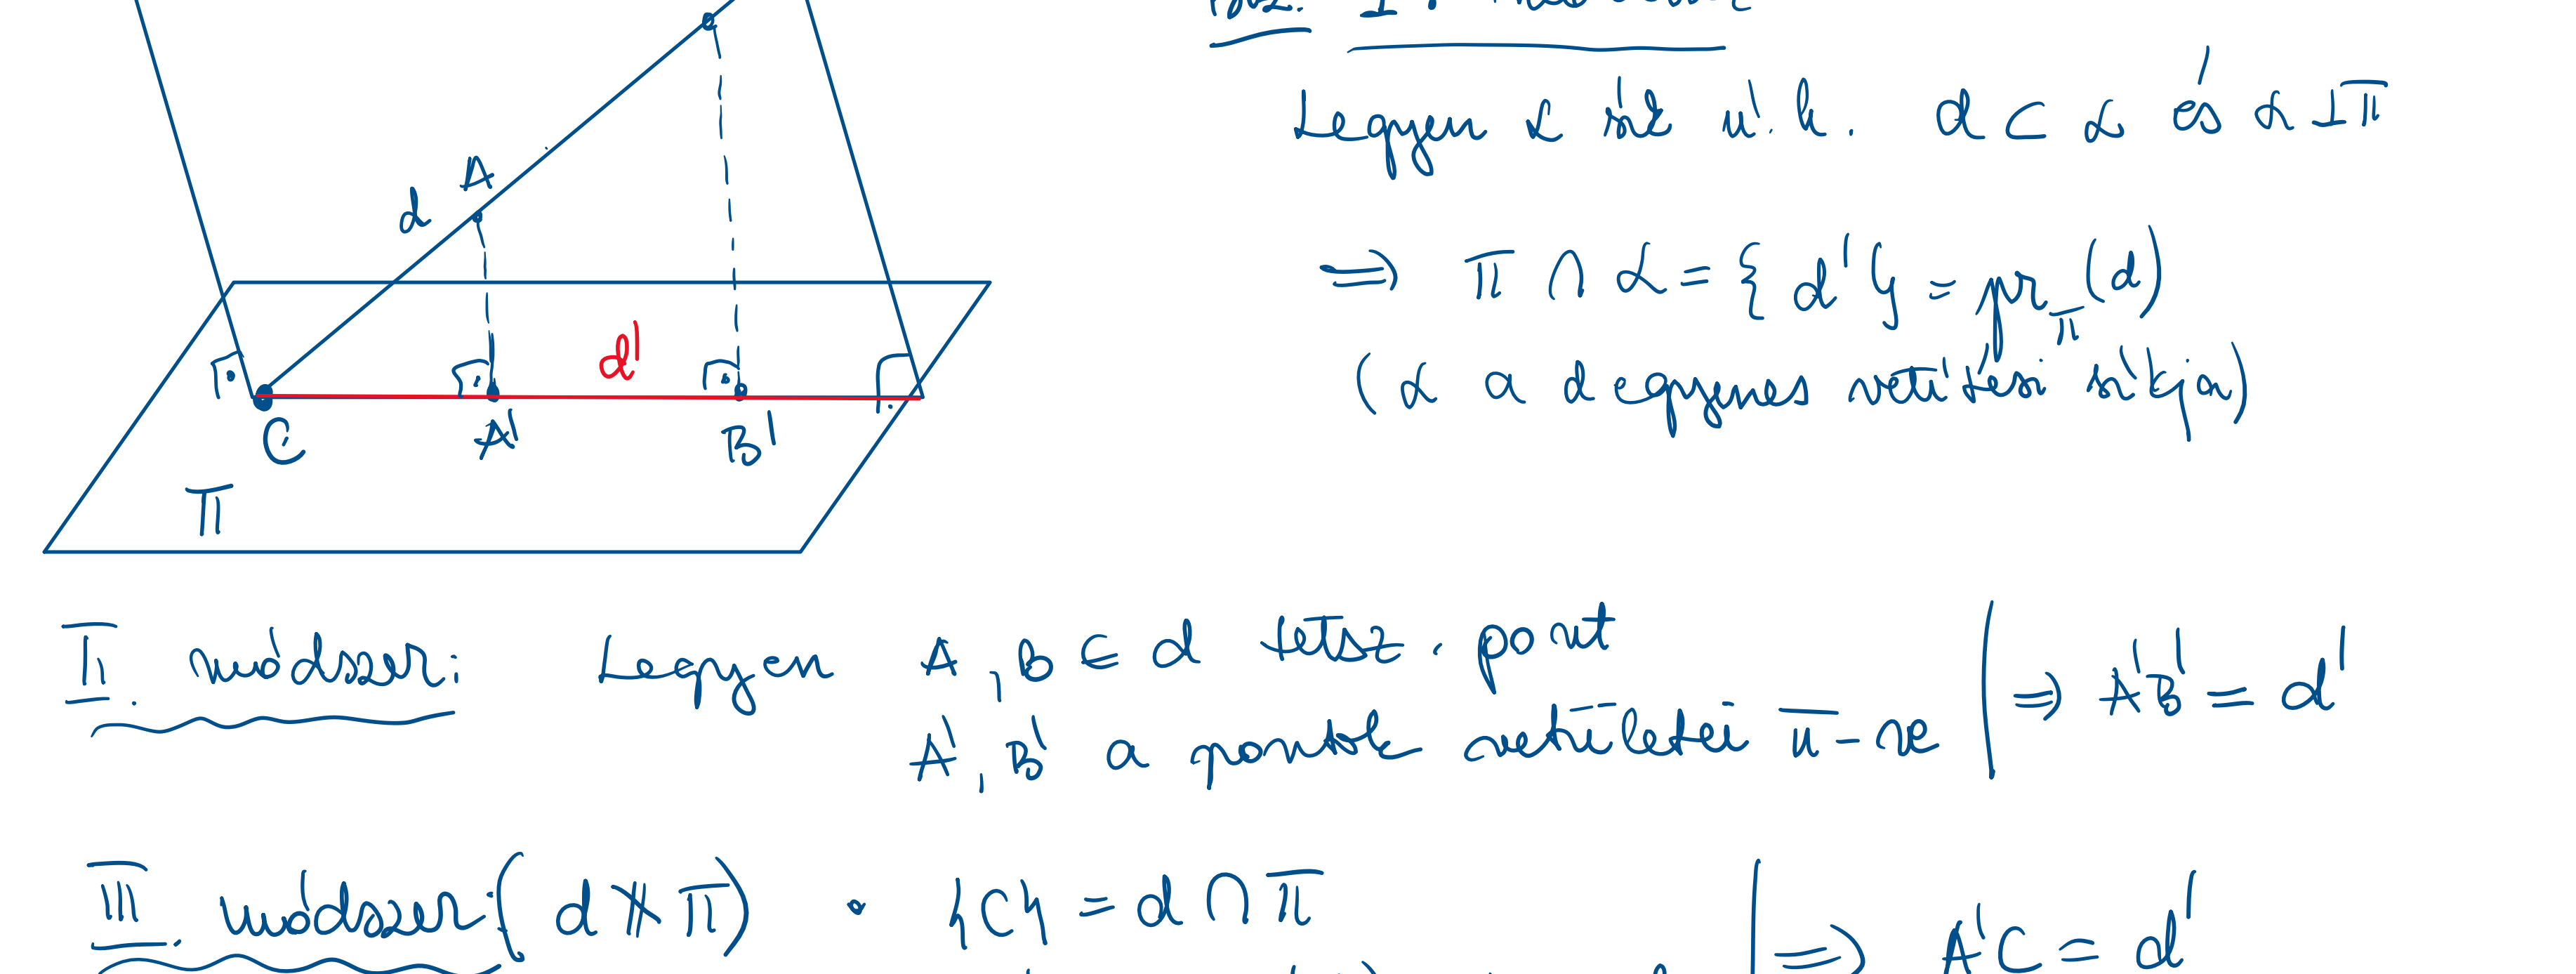 A
d
d'
C
A'
B'
π
Legyen α sík ú.h. d ⊂ α és α ⊥ π
⇒ π ∩ α = {d'} = pr_π (d)
(α a d egyenes vetítési síkja)
II. módszer: Legyen A, B ∈ d tetsz. pont
A', B' a pontok vetületei π-re | ⇒ A'B' = d'
III. módszer: (d ∦ π) • {C} = d ∩ π | ⇒ A'C = d'